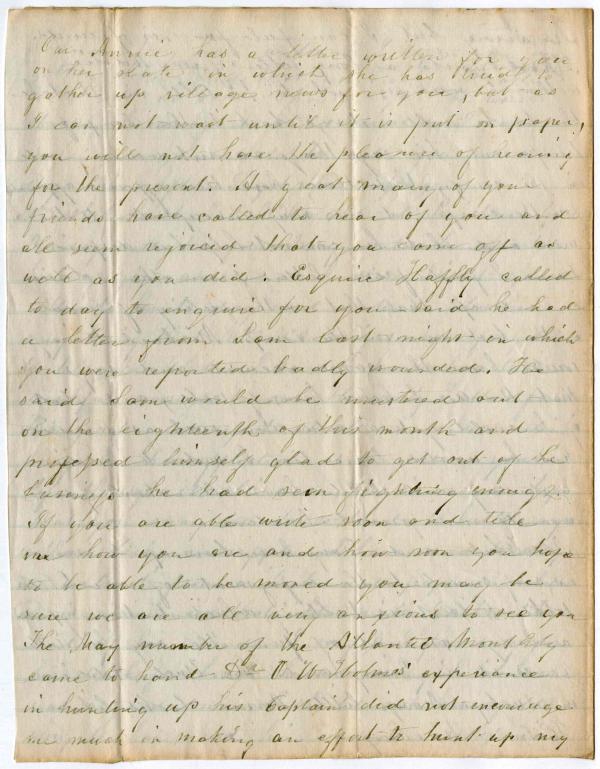 Our Annie has a letter written for you
on her slate in which she has tried to
gather up village news for you, but as
I can not wait until it is put on paper,
you will not have the pleasure of reading
for the present. A great many of your
friends have called to hear of you and
all seem rejoiced that you came off as
well as you did. Esquire Haffly called
to day to enquire for you said he had
a letter from Sam last night in which
you were reported badly wounded. He
said Sam would be mustered out
on the eighteenth of this month and
professed himself glad to get out of the
business he had seen fighting enough.
If you are able write soon and tell
me how you are and how soon you hope
to be able to be moved you may be
sure we are all very anxious to see you
The May number of the Atlantic Monthly
came to hand Dr O W Holmes' experiance
in hunting up his Captain did not encourage
me much in making an effort to hunt up my